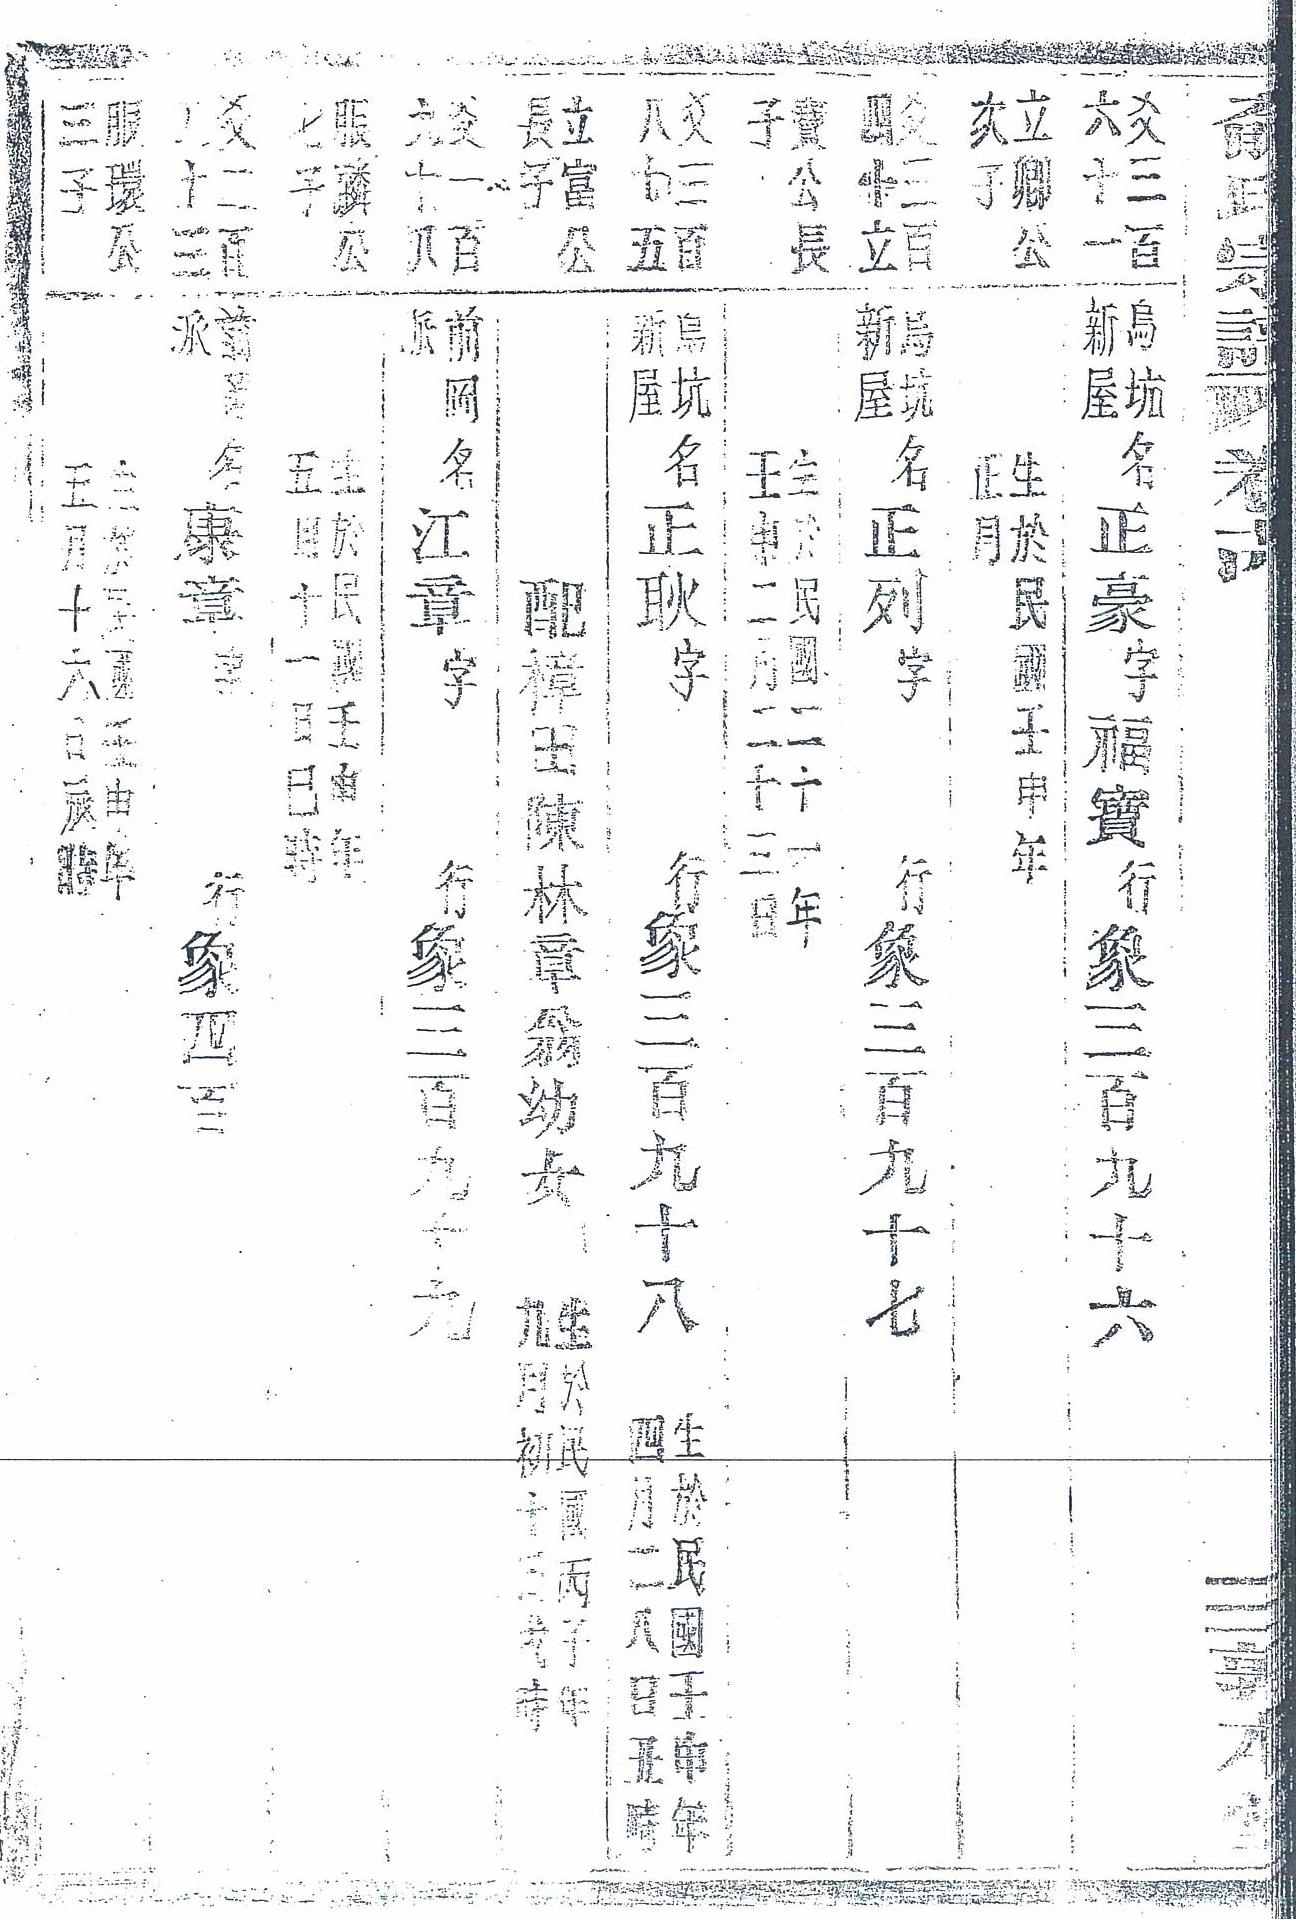 氏宗譜 卷六
爻三百
六十一
立卿公
次子
烏坑
新屋
名正豪字福寶行象三百九十六
生於民國壬申年
正月
爻三百
四十立
寶公長
子
烏坑
新屋
名正列字 行象三百九十七
生於民國二十一年
壬申二月二十三日
爻三百
八十五
立富公
長子
烏坑
新屋
名正耿字 行象三百九十八
生於民國壬申年
四月二八日丑時
配樟王陳林章翁幼女
生於民國丙子年
九月初十三 時
爻一百
六十八
服 公
七子
前岡
派
名江章字 行象三百九十九
生於民國壬申年
五月十一日巳時
爻二百
八十三
服環公
三子
前岡
派
名康章字 行象四百
生於民國壬申年
五月十六日 時